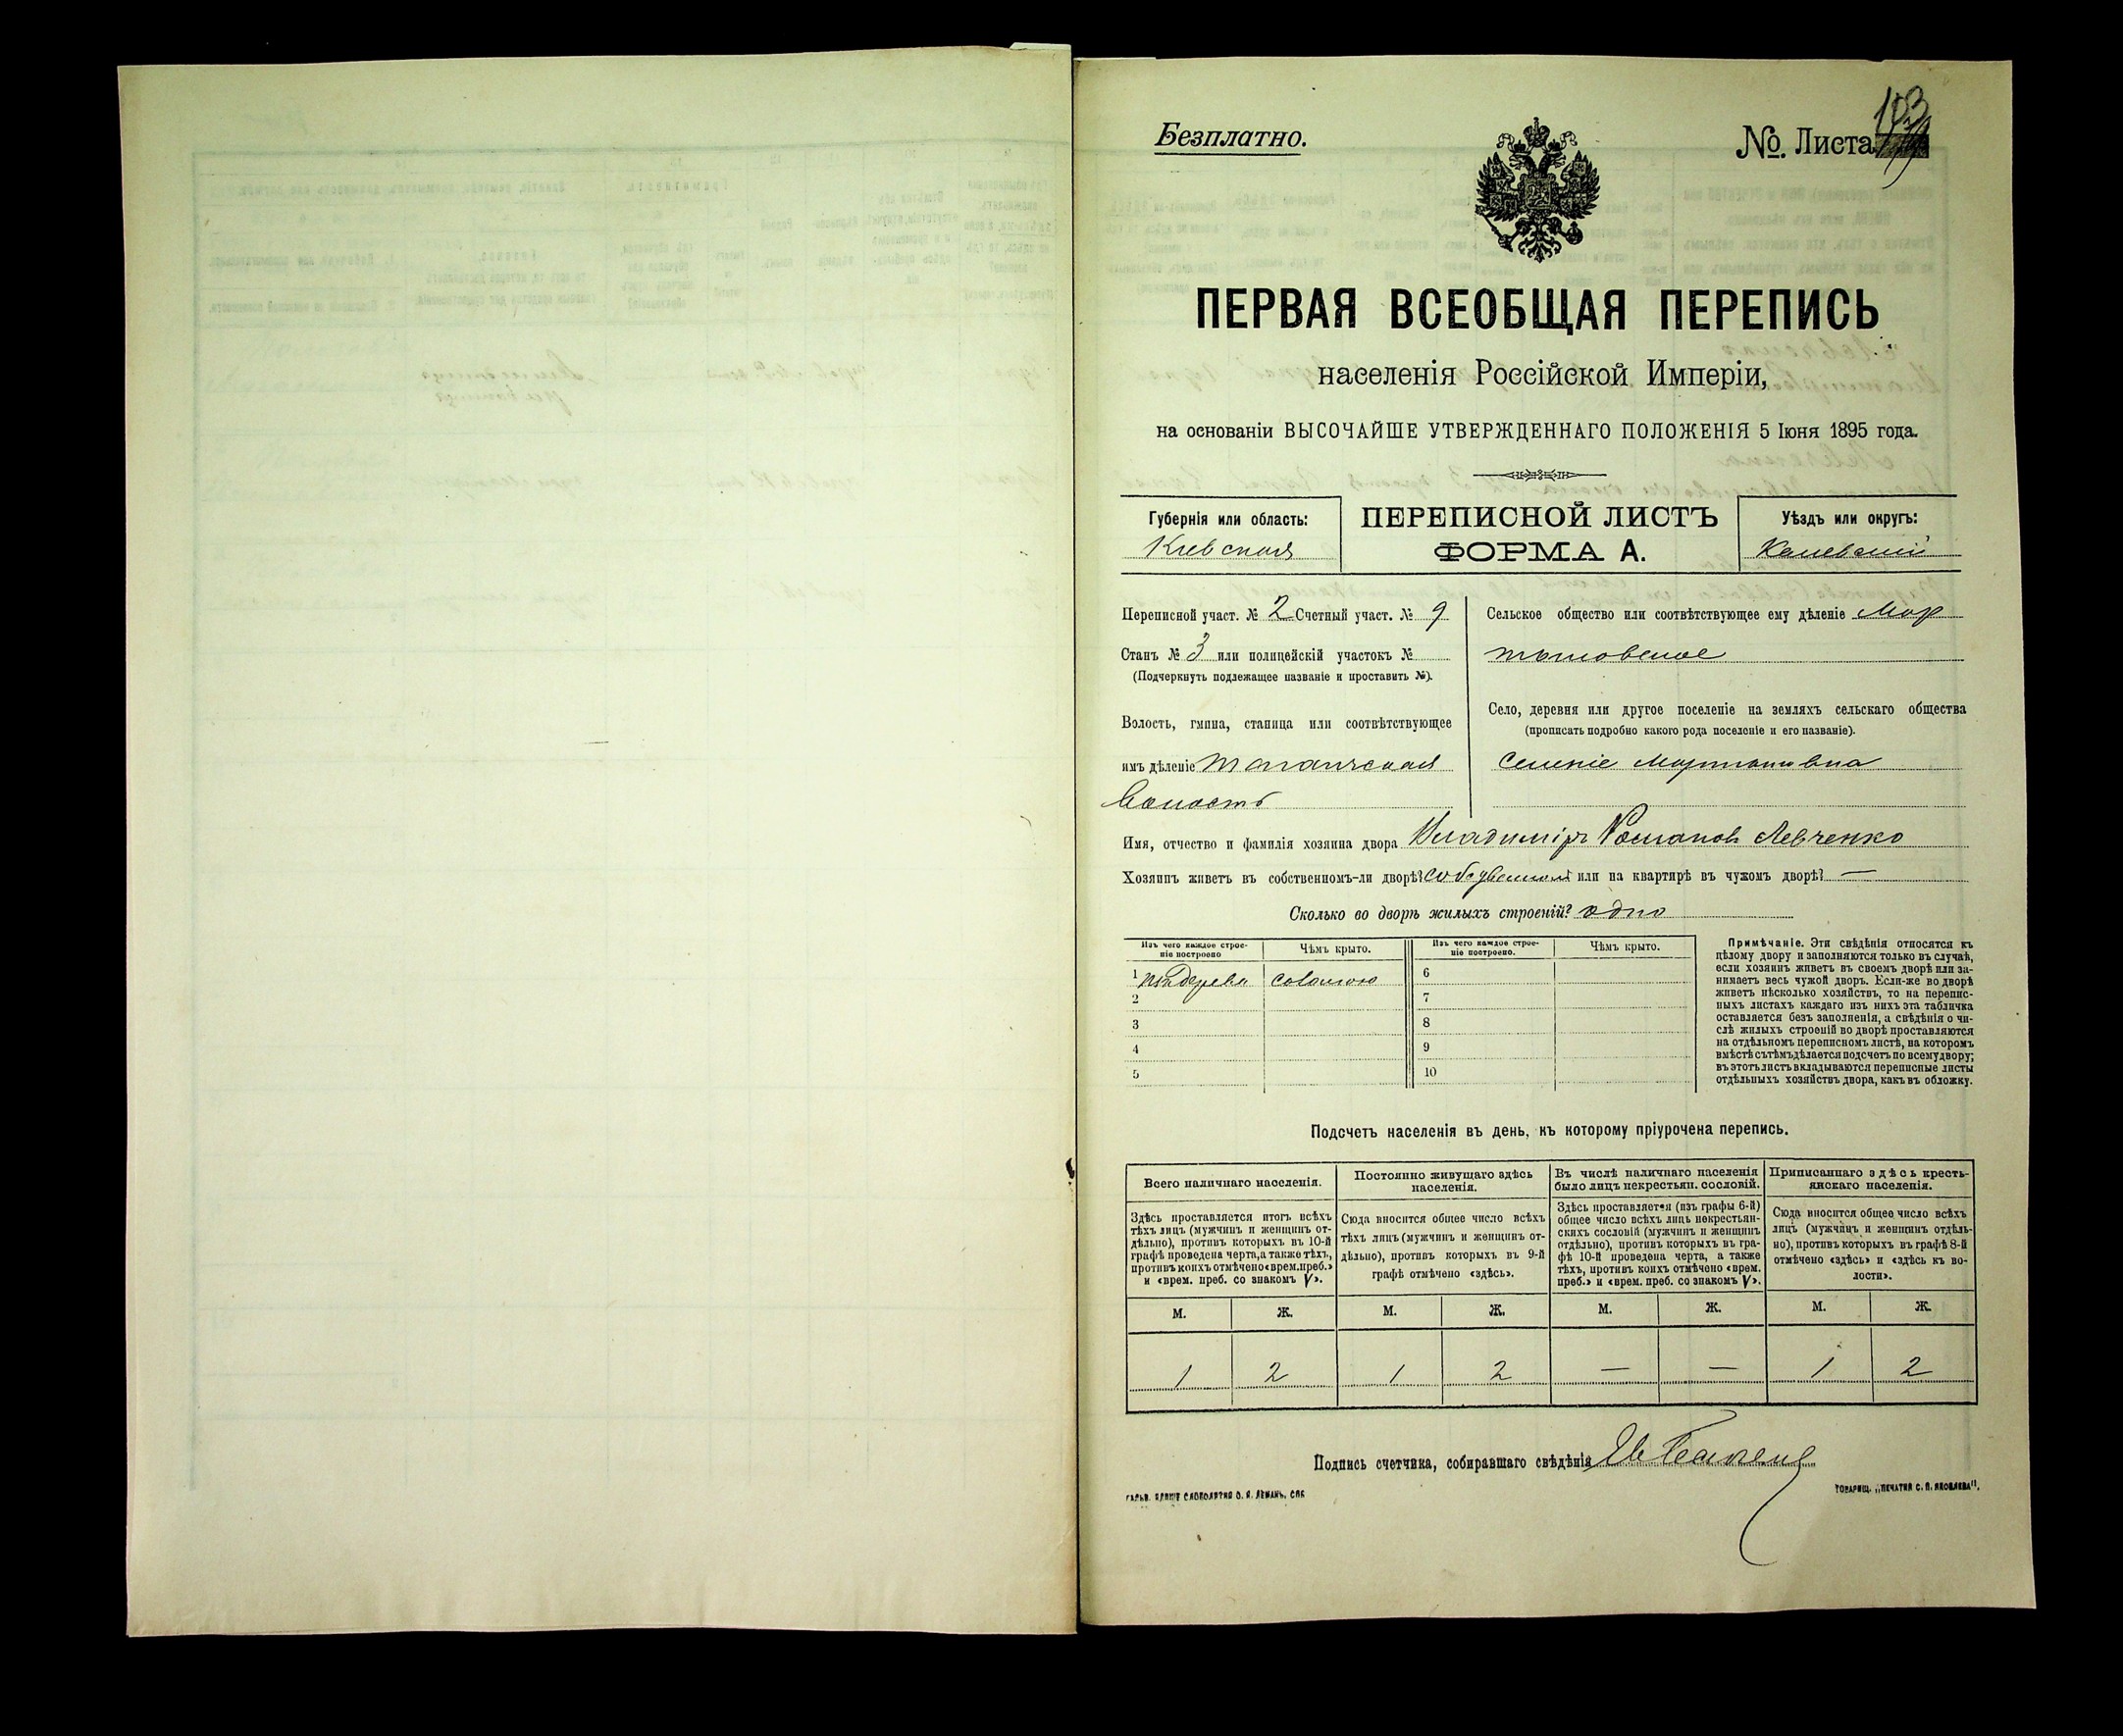 Безплатно.
№ Листа 103
ПЕРВАЯ ВСЕОБЩАЯ ПЕРЕПИСЬ
населенія Россійской Имперіи,
на основаніи ВЫСОЧАЙШЕ УТВЕРЖДЕННАГО ПОЛОЖЕНІЯ 5 Іюня 1895 года.
Губернія или область:
Кіевская
ПЕРЕПИСНОЙ ЛИСТЪ
ФОРМА А.
Уѣздъ или округъ:
Каневскій
Переписной участ. № 2 Счетный участ. № 9
Станъ № 3 или полицейскій участокъ №
(Подчеркнуть подлежащее названіе и проставить №).
Волость, гмина, станица или соотвѣтствующее
имъ дѣленіе Таганчская
Волость
Сельское общество или соотвѣтствующее ему дѣленіе Мар
тыновское
Село, деревня или другое поселеніе на земляхъ сельскаго общества
(прописать подробно какого рода поселеніе и его названіе).
Селеніе Мартыновка
Имя, отчество и фамилія хозяина двора Владиміръ Романовъ Левченко
Хозяинъ живетъ въ собственномъ-ли дворѣ? или на квартирѣ въ чужомъ дворѣ? —
Сколько во дворѣ жилыхъ строеній? одно
Изъ чего каждое строе-
ніе построено
Чѣмъ крыто.
Изъ чего каждое строе-
ніе построено.
Чѣмъ крыто.
1 изъ дерева соломою
2
3
4
5
6
7
8
9
10
Примѣчаніе. Эти свѣдѣнія относятся къ
цѣлому двору и заполняются только въ случаѣ,
если хозяинъ живетъ въ своемъ дворѣ или за-
нимаетъ весь чужой дворъ. Если-же во дворѣ
живетъ нѣсколько хозяйствъ, то на перепис-
ныхъ листахъ каждаго изъ нихъ эта табличка
оставляется безъ заполненія, а свѣдѣнія о чи-
слѣ жилыхъ строеній во дворѣ проставляются
на отдѣльномъ переписномъ листѣ, на которомъ
вмѣстѣ съ тѣмъ дѣлается подсчетъ по всему двору;
въ этотъ листъ вкладываются переписные листы
отдѣльныхъ хозяйствъ двора, какъ въ обложку.
Подсчетъ населенія въ день, къ которому пріурочена перепись.
Всего наличнаго населенія.
Здѣсь проставляется итогъ всѣхъ
тѣхъ лицъ (мужчинъ и женщинъ от-
дѣльно), противъ которыхъ въ 10-й
графѣ проведена черта, а также тѣхъ,
противъ коихъ отмѣчено «врем. преб.»
и «врем. преб. со знакомъ V».
Постоянно живущаго здѣсь
населенія.
Сюда вносится общее число всѣхъ
тѣхъ лицъ (мужчинъ и женщинъ от-
дѣльно), противъ которыхъ въ 9-й
графѣ отмѣчено «здѣсь».
Въ числѣ наличнаго населенія
было лицъ некрестьян. сословій.
Здѣсь проставляется (изъ графы 6-й)
общее число всѣхъ лицъ некрестьян-
скихъ сословій (мужчинъ и женщинъ
отдѣльно), противъ которыхъ въ гра-
фѣ 10-й проведена черта, а также
тѣхъ, противъ коихъ отмѣчено «врем.
преб.» и «врем. преб. со знакомъ V».
Приписаннаго здѣсь кресть-
янскаго населенія.
Сюда вносится общее число всѣхъ
лицъ (мужчинъ и женщинъ отдѣль-
но), противъ которыхъ въ графѣ 8-й
отмѣчено «здѣсь» и «здѣсь къ во-
лости».
М. Ж. М. Ж. М. Ж. М. Ж.
1 2 1 2 — — 1 2
Подпись счетчика, собиравшаго свѣдѣнія
ТОВАРИЩ. „ПЕЧАТНЯ С. П. ЯКОВЛЕВА".